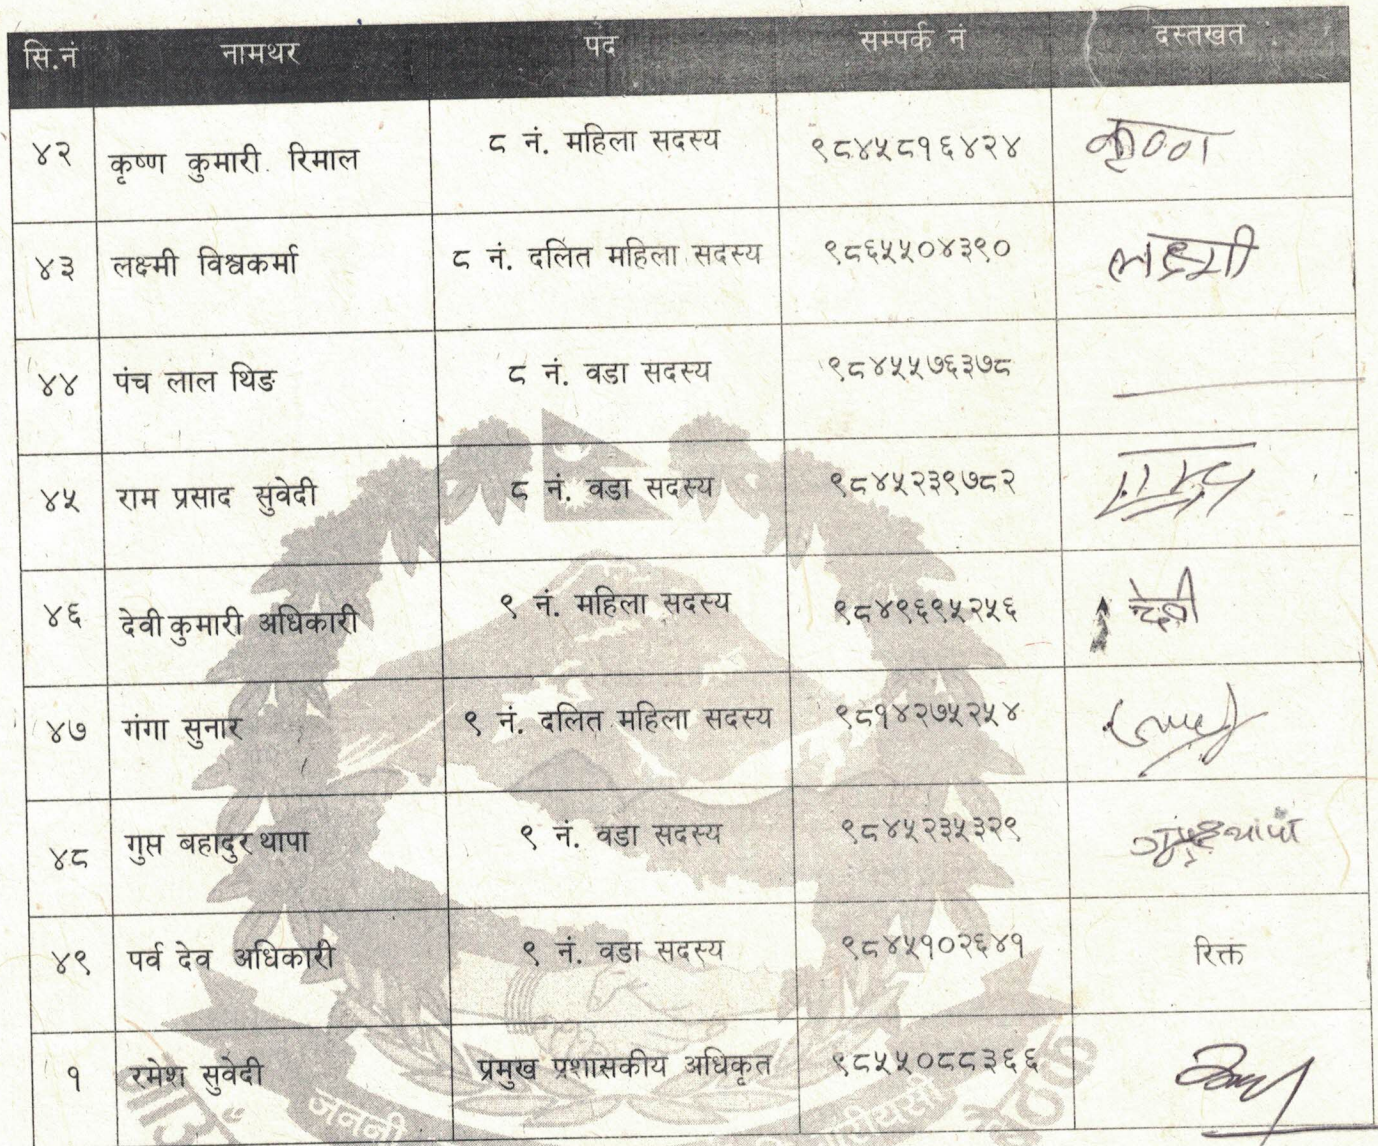 सि.नं नामथर पद सम्पर्क नं दस्तखत
४२ कृष्ण कुमारी रिमाल ८ नं. महिला सदस्य ९८४५८१६४२४ कृष्ण
४३ लक्ष्मी विश्वकर्मा ८ नं. दलित महिला सदस्य ९८६५५०४३९० लक्ष्मी
४४ पंच लाल थिङ ८ नं. वडा सदस्य ९८४५५७६३७८
४५ राम प्रसाद सुवेदी ८ नं. वडा सदस्य ९८४५२३९७८२
४६ देवी कुमारी अधिकारी ९ नं. महिला सदस्य ९८४९६९५२५६ देवी
४७ गंगा सुनार ९ नं. दलित महिला सदस्य ९८१४२७५२५४
४८ गुप्त बहादुर थापा ९ नं. वडा सदस्य ९८४५२३५३२९ थापा
४९ पर्व देव अधिकारी ९ नं. वडा सदस्य ९८४५१०२६४१ रिक्त
१ रमेश सुवेदी प्रमुख प्रशासकीय अधिकृत ९८५५०८८३६६
जननी